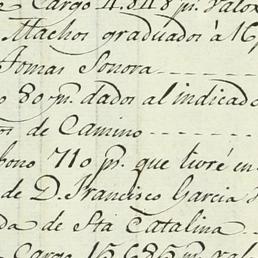 Cargo 4.848 p.s valor
Machos graduados à 16 p
Tomas Sonora
80 p.s dados al indicado
de Camino
bono 710 p.s que livré en
de D. Francisco Garcia
da de Sta Catalina
Cargo 15.685 p.s val